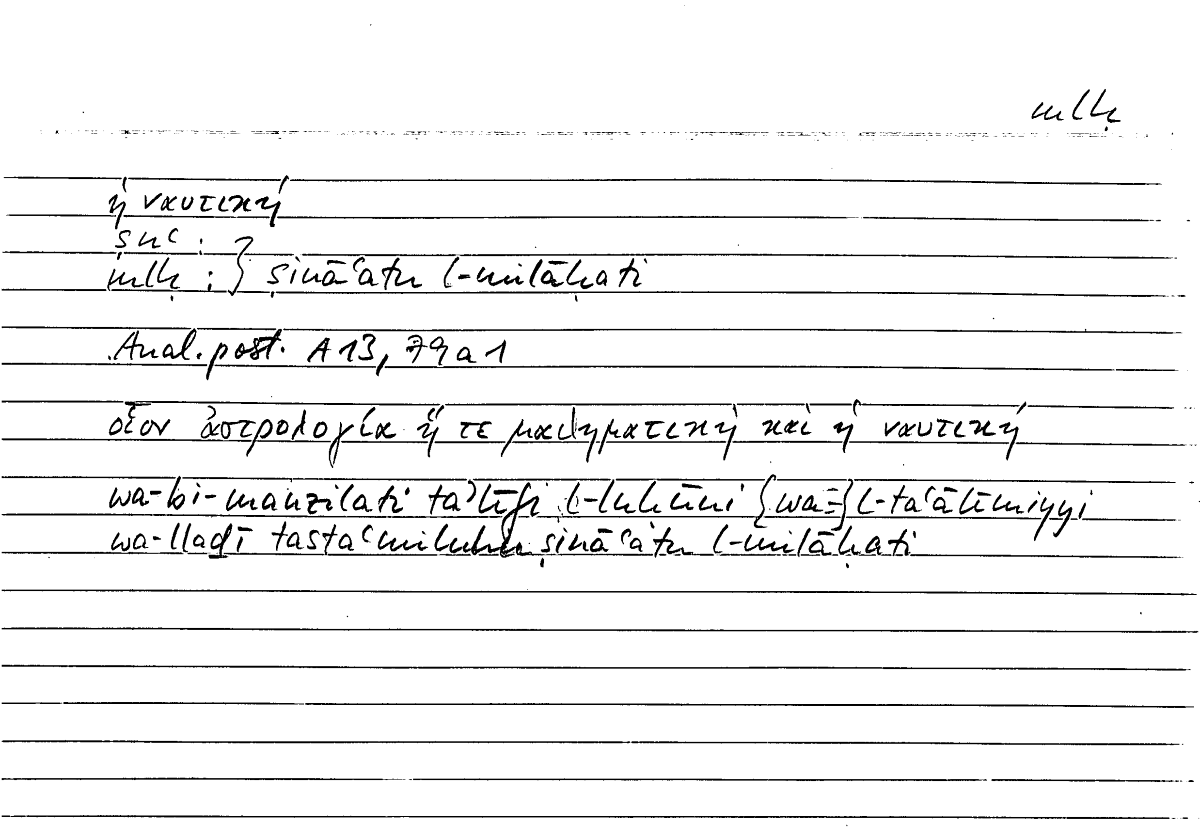 mlḥ
ἡ ναυτική
ṣnʿ :
mlḥ : } ṣināʿatu l-milāḥati
Anal. post. A 13, 79 a 1
οἷον ἀστρολογία ἥ τε μαθηματικὴ καὶ ἡ ναυτική
wa-bi-manzilati taʾlīfi l-luḥūni {wa-} l-taʿālīmiyyi
wa-llaḏī tastaʿmiluhu ṣināʿatu l-milāḥati